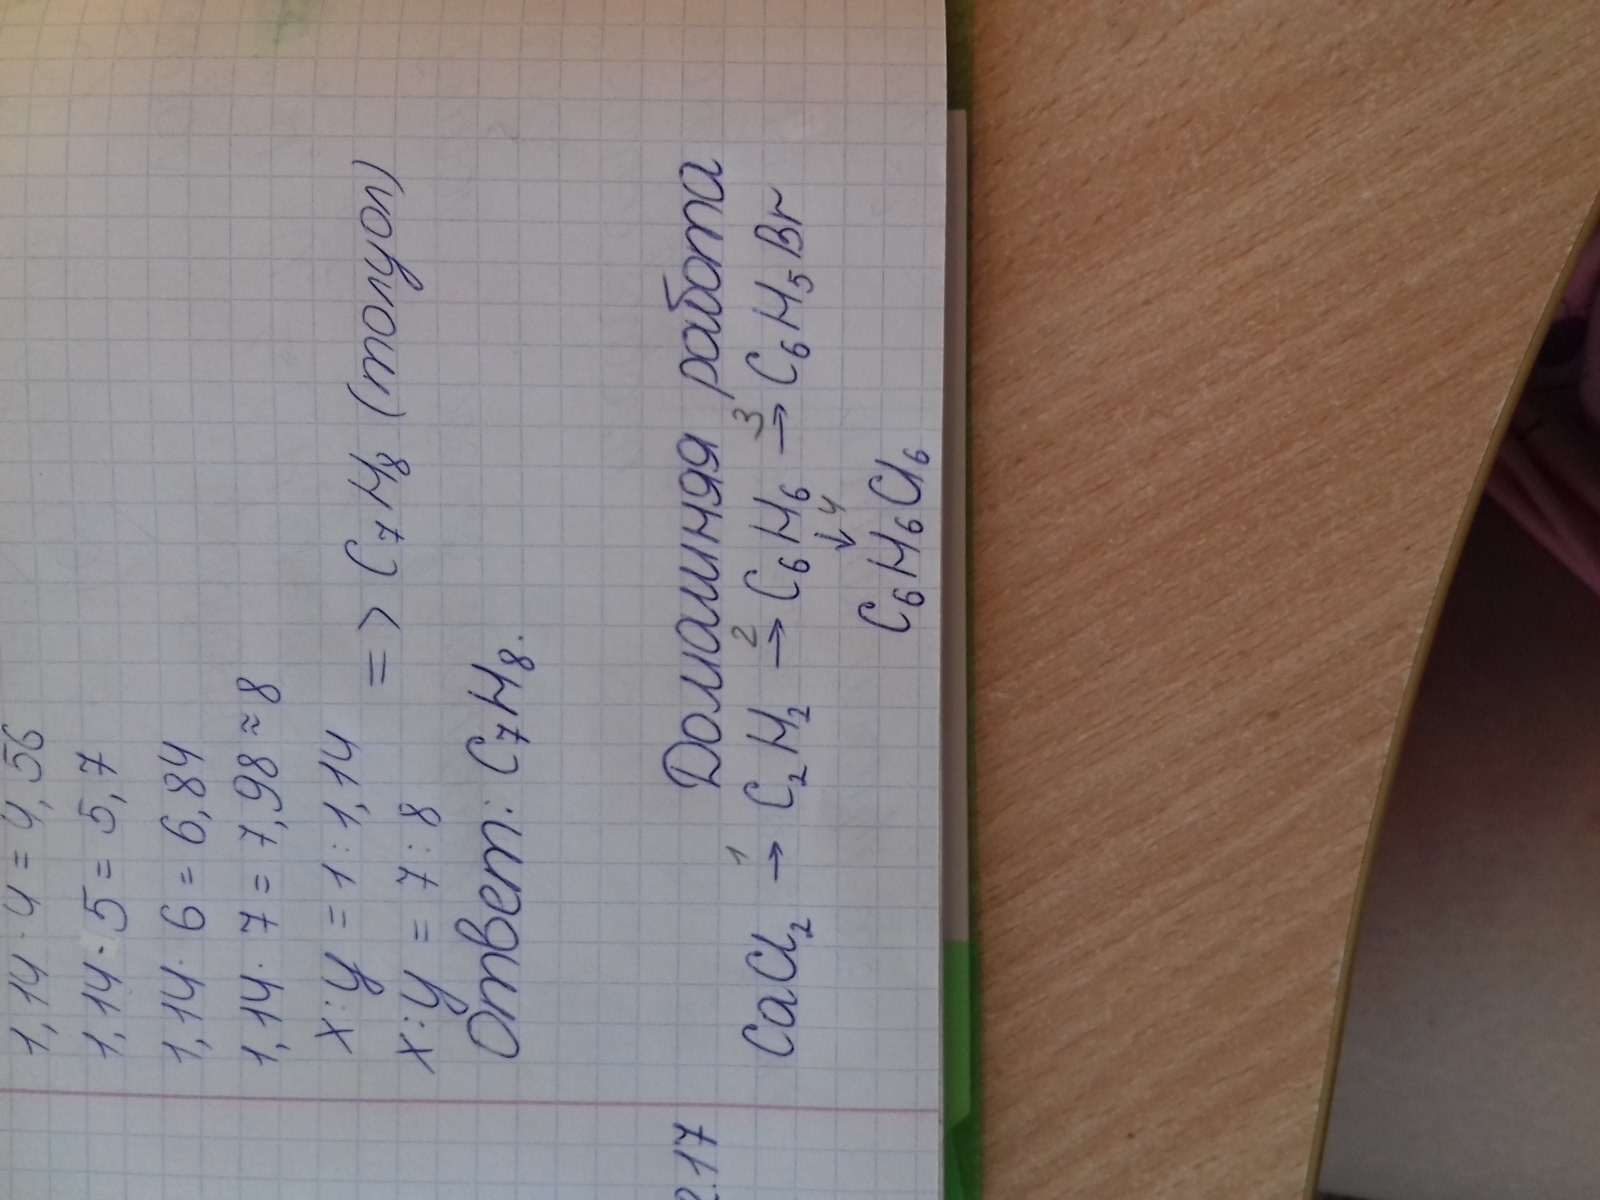 1,14 · 4 = 4,56
1,14 · 5 = 5,7
1,14 · 6 = 6,84
1,14 · 7 = 7,98 ≈ 8
x : y = 1 : 1,14
=> C₇H₈ (толуол)
x : y = 7 : 8
Ответ: C₇H₈.
2.17 Домашняя работа
CaCl₂ →¹ C₂H₂ →² C₆H₆ →³ C₆H₅Br
↓4
C₆H₆Cl₆